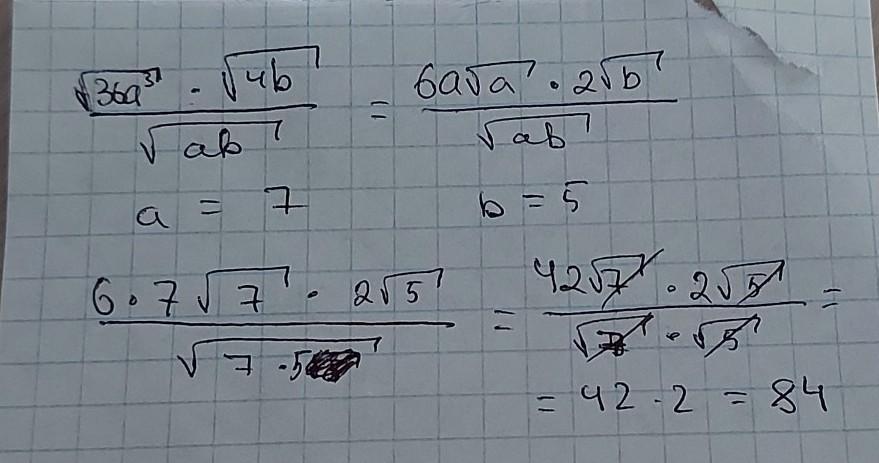 √36a³ · √4b / √ab = 6a√a · 2√b / √ab
a = 7 b = 5
6·7√7 · 2√5 / √7·5 = 42√7 · 2√5 / √7 · √5 =
= 42·2 = 84